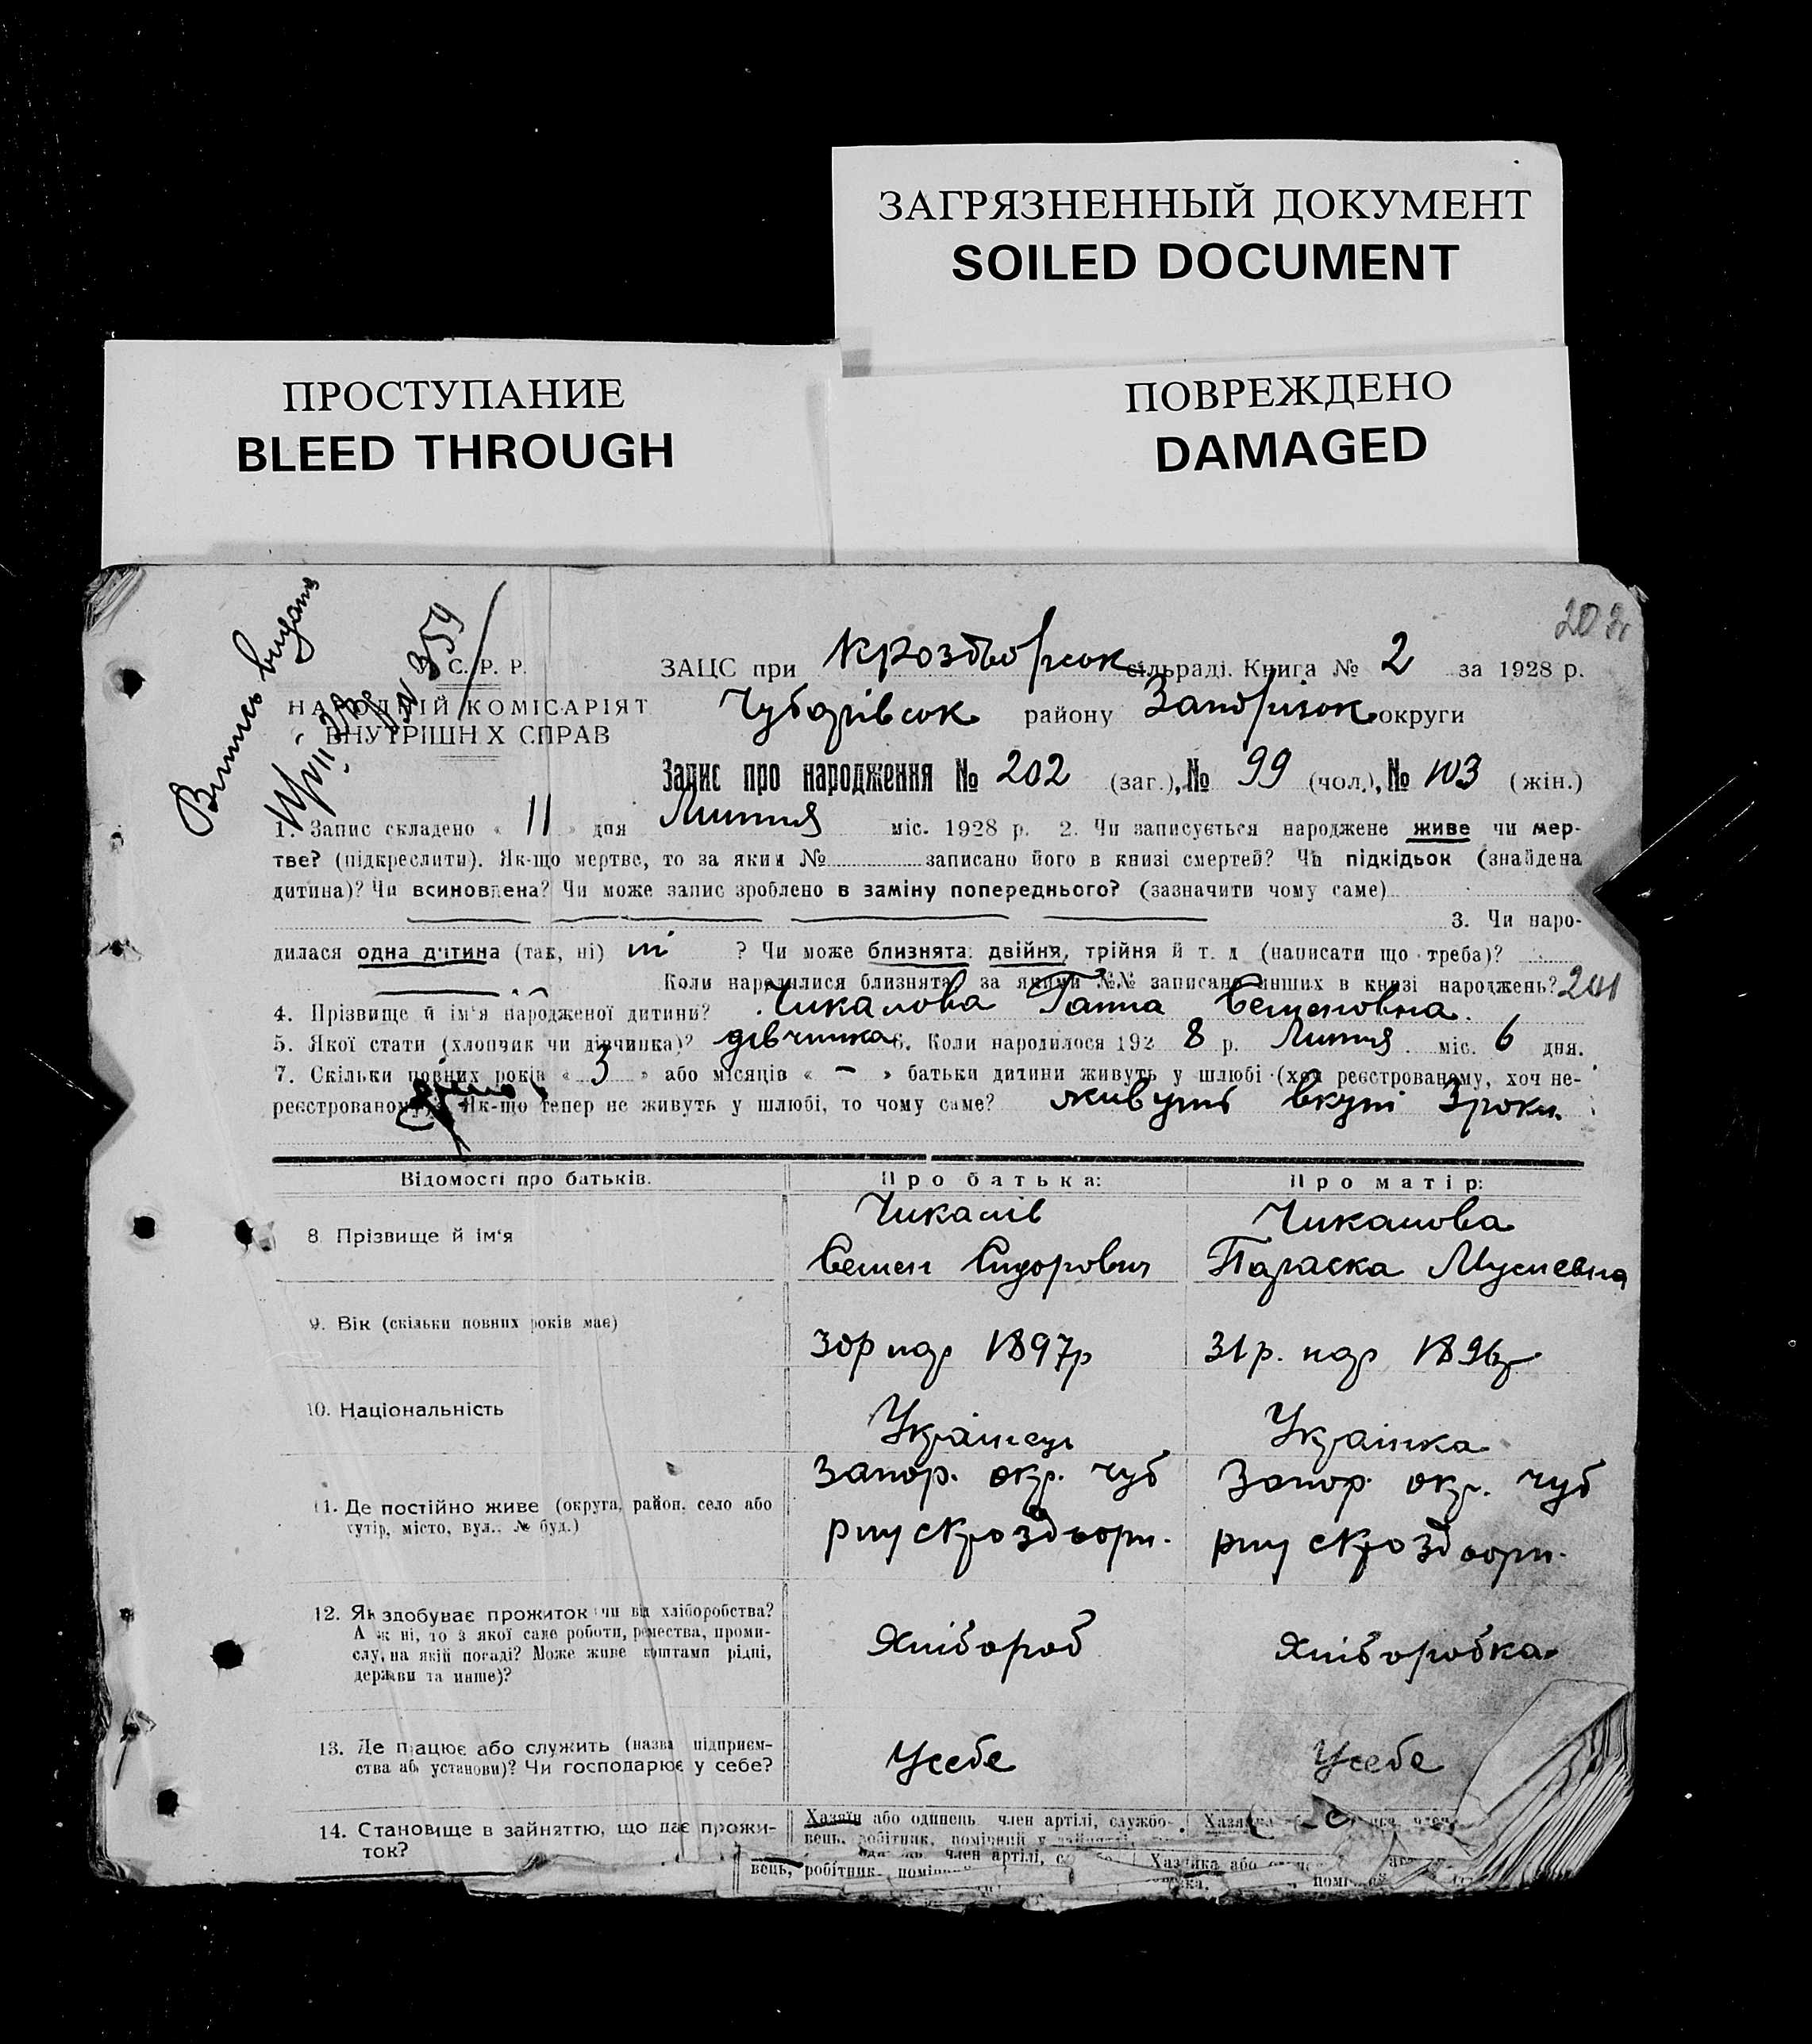 ЗАГРЯЗНЕННЫЙ ДОКУМЕНТ
SOILED DOCUMENT
ПРОСТУПАНИЕ
BLEED THROUGH
ПОВРЕЖДЕНО
DAMAGED
Випись видана
№ 354
С. Р. Р.
НАРОДНІЙ КОМІСАРІЯТ
ВНУТРІШН Х СПРАВ
ЗАЦС при сільраді. Книга № 2 за 1928 р.
Чубарівськ. району Запоріжськ округи
Запис про народження № 202 (заг.), № 99 (чол.), № 103 (жін.)
1. Запис складено « 11 » дня Липня міс. 1928 р. 2. Чи записується народжене живе чи мер-
тве? (підкреслити). Як-що мертве, то за яким № записано його в книзі смертей? Чи підкідьок (знайдена
дитина)? Чи всиновлена? Чи може запис зроблено в заміну попереднього? (зазначити чому саме)
3. Чи наро-
дилася одна дитина (так, ні) ні ? Чи може близнята: двійня, трійня й т. д (написати що треба)?
Коли народилися близнята, за якими №№ записано инших в книзі народжень? 201
4. Прізвище й ім'я народженої дитини? Чикалова Ганна Семеновна.
5. Якої стати (хлопчик чи дівчинка)? дівчинка 6. Коли народилося 192 8 р. Липня міс. 6 дня.
7. Скільки повних років « 3 » або місяців « – » батьки дитини живуть у шлюбі (хоч реєстрованому, хоч не-
реєстрованому)? Як-що тепер не живуть у шлюбі, то чому саме? живуть вкупі 3 роки.
Відомості про батьків.
Про батька:
Про матір:
8. Прізвище й ім'я
Чикалів
Семен Сидорович
Чикалова
Параска Мусиевна
9. Вік (скільки повних років має)
30р нар 1897р
31р. нар 1896р
10. Національність
Українець
Українка
11. Де постійно живе (округа, район, село або
хутір, місто, вул., № буд.)
Запор. окр. Чуб
Запор окр. Чуб
12. Як здобуває прожиток чи від хліборобства?
А ж ні, то з якої саме роботи, ремества, проми-
слу, на якій посаді? Може живе коштами рідні,
держави та инше)?
Хлібороб
Хліборобка
13. Де працює або служить (назва підприєм-
ства аб. установи)? Чи господарює у себе?
Усебе
Усебе
14. Становище в зайняттю, що дає прожи-
ток?
Хазяїн або одинець, член артілі, службо-
вець, робітник, помічний у
член артілі,
Хазяйка або
вець, робітник